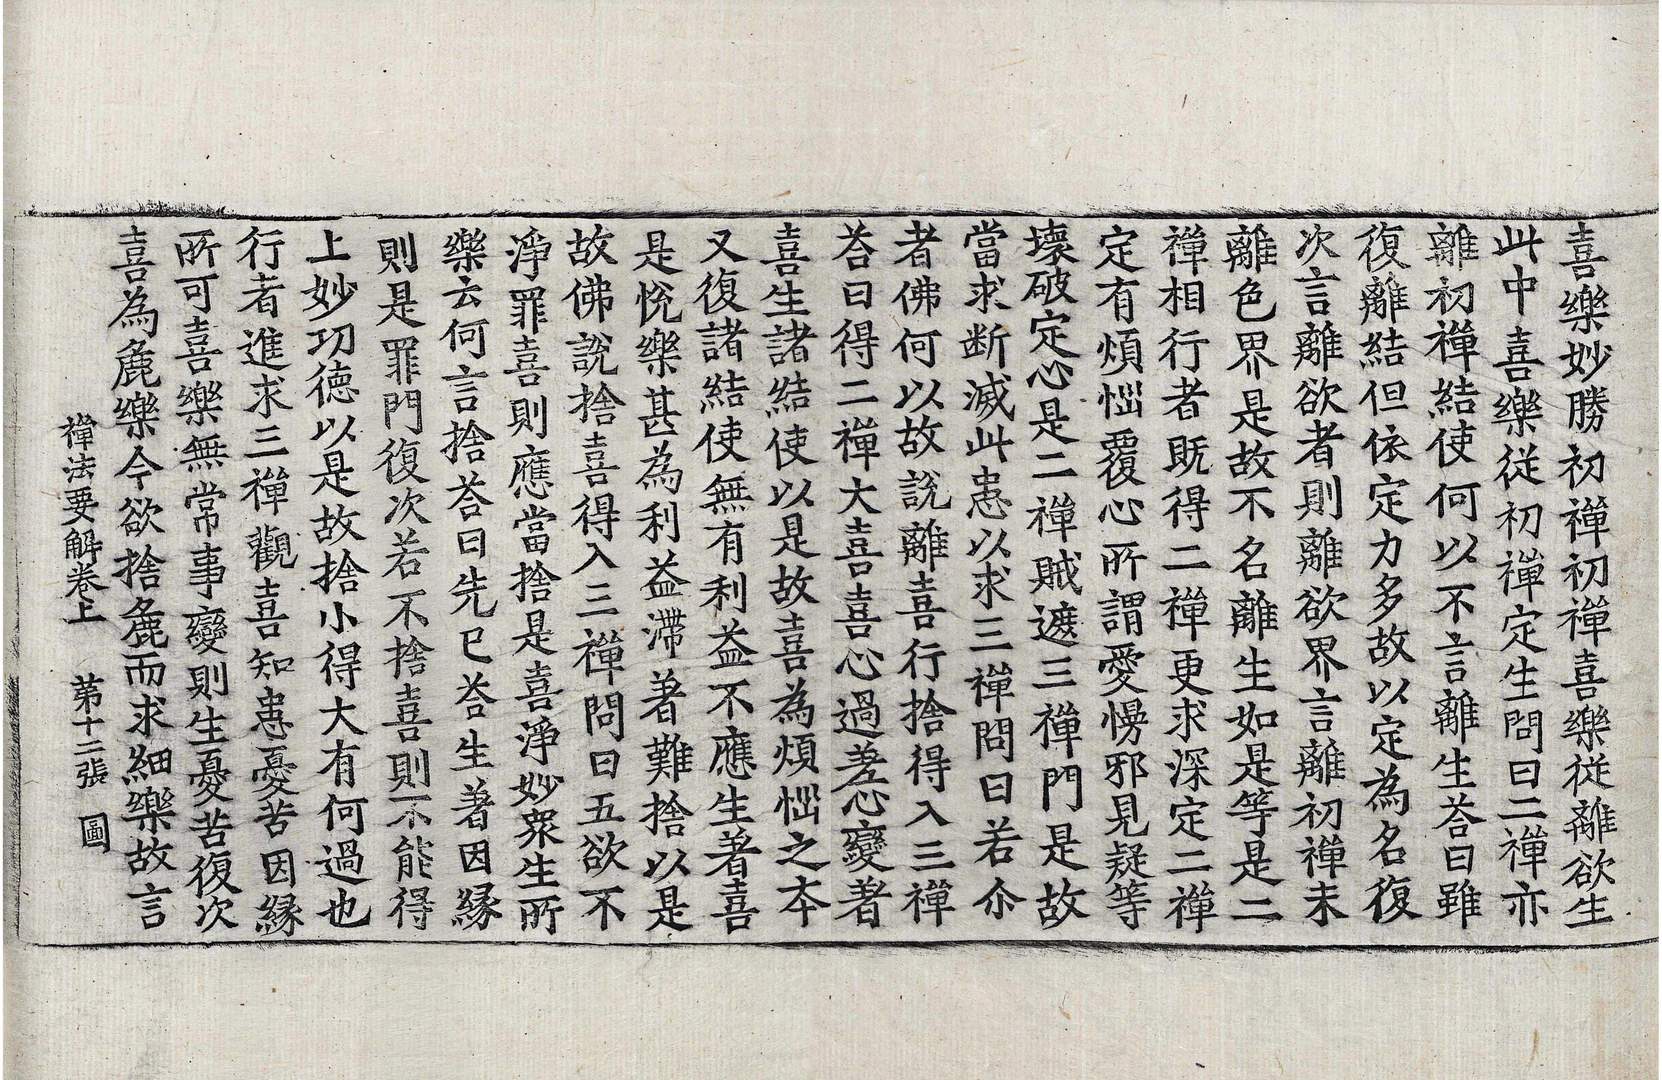 喜樂妙勝初禪初禪喜樂從離欲生
此中喜樂從初禪定生問曰二禪亦
離初禪結使何以不言離生荅曰雖
復離結但依定力多故以定為名復
次言離欲者則離欲界言離初禪未
離色界是故不名離生如是等是二
禪相行者既得二禪更求深定二禪
定有煩惱覆心所謂愛慢邪見疑等
壞破定心是二禪賊遮三禪門是故
當求断滅此患以求三禪問曰若尒
者佛何以故說離喜行捨得入三禪
荅曰得二禪大喜喜心過差心變著
喜生諸結使以是故喜為煩惱之本
又復諸結使無有利益不應生著喜
是悅樂甚為利益滯著難捨以是
故佛說捨喜得入三禪問曰五欲不
淨罪喜則應當捨是喜淨妙眾生所
樂云何言捨荅曰先已荅生著因緣
則是罪門復次若不捨喜則不能得
上妙功德以是故捨小得大有何過也
行者進求三禪觀喜知患憂苦因緣
所可喜樂無常事變則生憂苦復次
喜為麁樂今欲捨麁而求細樂故言
禪法要解卷上　第十二張　圖